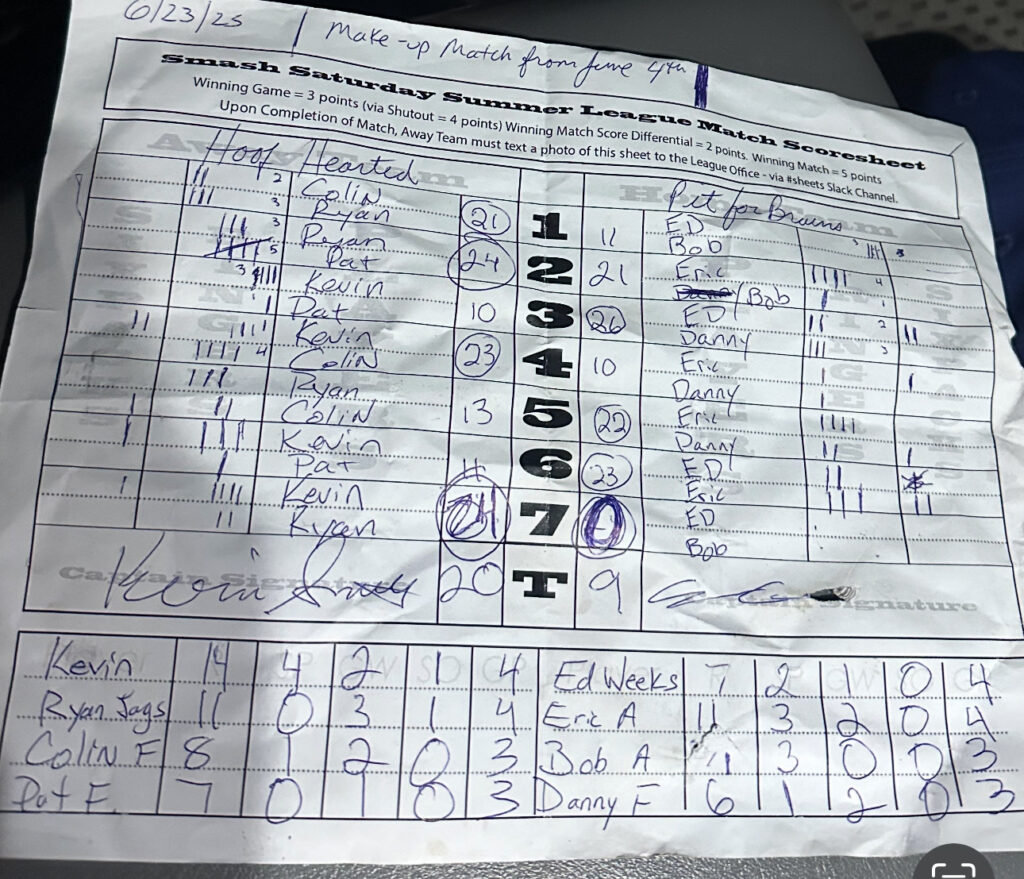 6/23/25 | Make-up Match from June 4th
Smash Saturday Summer League Match Scoresheet
Winning Game = 3 points (via Shutout = 4 points) Winning Match Score Differential = 2 points. Winning Match = 5 points
Upon Completion of Match, Away Team must text a photo of this sheet to the League Office - via #sheets Slack Channel.
Hoof Hearted Pit for Brains
2 Colin 21 1 11 ED 3
3 Ryan Bob
3 Ryan 24 2 21 Eric 4
5 Pat /Bob 1
3 Kevin 10 3 26 ED 2
1 Pat Danny 3
Kevin 23 4 10 Eric 1
4 Colin Danny 1
Ryan 13 5 22 Eric
Colin Danny
Kevin 6 23 ED
Pat Eric
Kevin 24 7 0 ED
Ryan Bob
Captain Signature 20 T 9 Captain Signature
Kevin 14 4 2 1 4 Ed Weeks 7 2 1 0 4
Ryan Jags 11 0 3 1 4 Eric A 11 3 2 0 4
Colin F 8 1 2 0 3 Bob A 11 3 0 0 3
Pat F. 7 0 1 0 3 Danny F 6 1 2 0 3